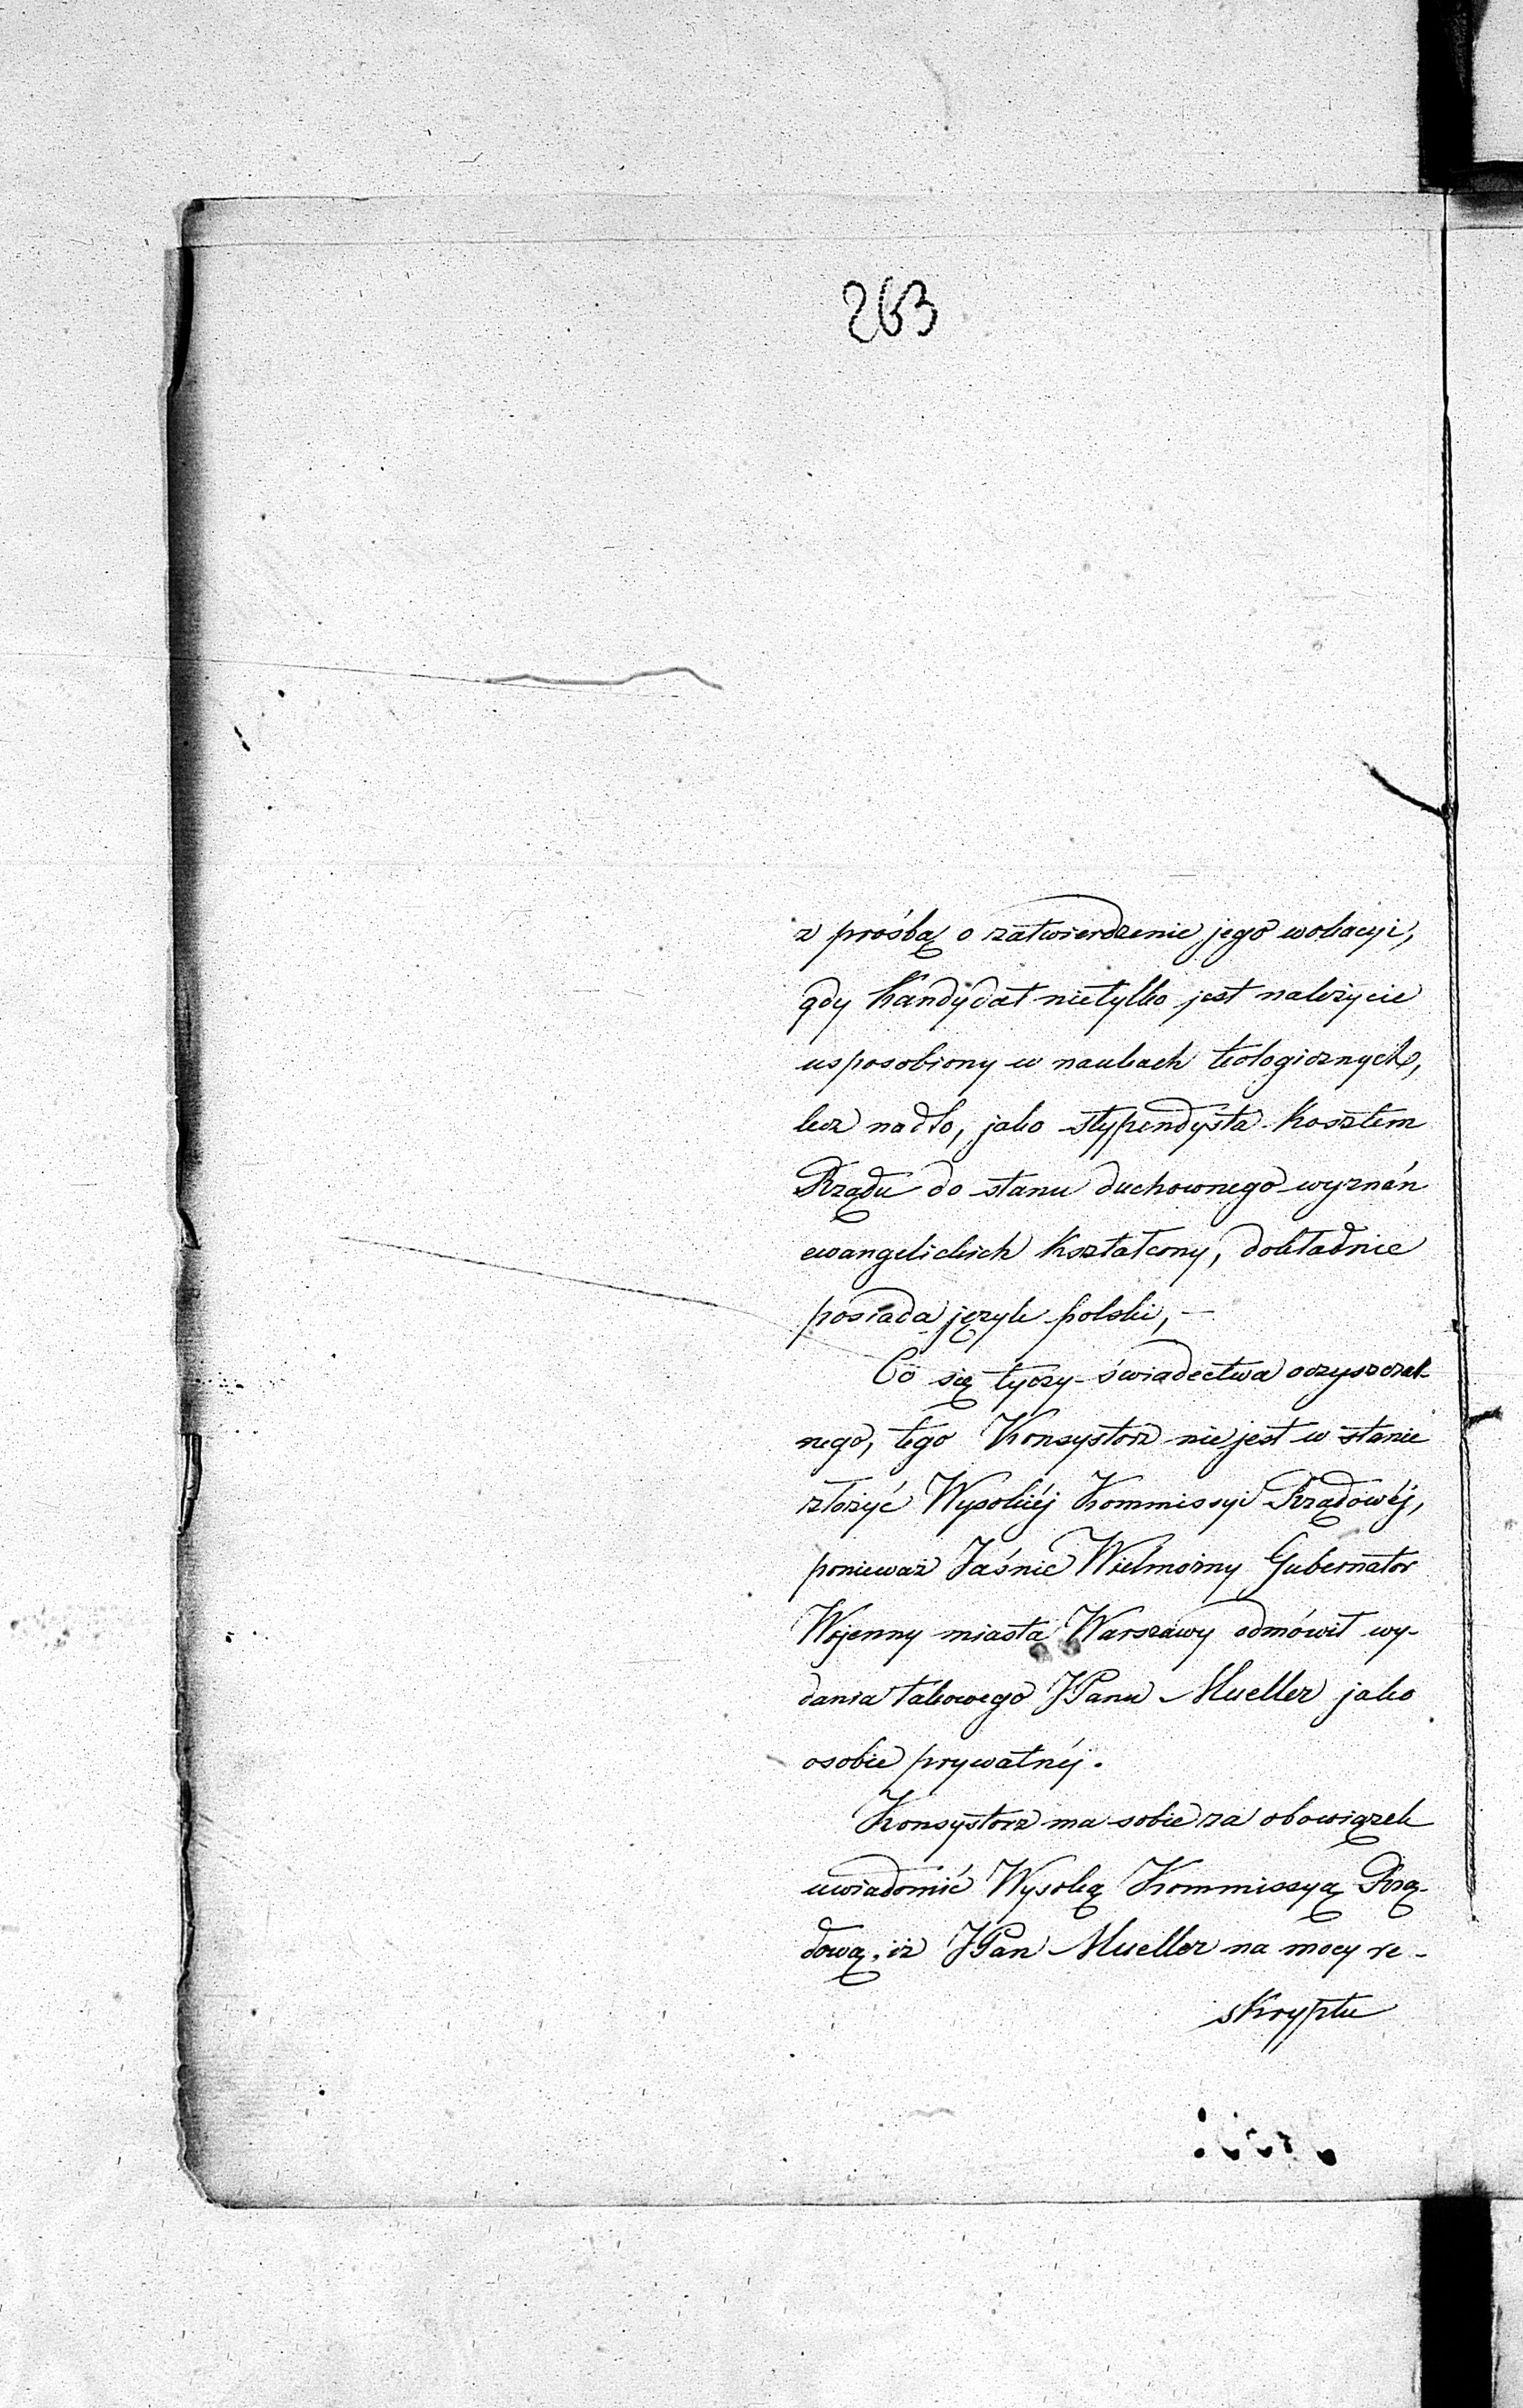 263
z prośbą o zatwierdzenie jego wokacyi,
gdy Kandydat nietylko jest należycie
usposobiony w naukach teologicznych,
lecz nadto, jako stypendysta kosztem
Rządu do stanu duchownego wyznań
ewangelickich kształcony, dokładnie
posiada język polski, —
Co się tyczy świadectwa oczyszczal-
nego, tego Konsystorz nie jest w stanie
złożyć Wysokiéj Kommissyi Rządowéj,
ponieważ Jaśnie Wielmożny Gubernator
Wojenny miasta Warszawy odmówił wy-
dania takowego JPanu Mueller jako
osobie prywatnéj.
Konsystorz ma sobie za obowiązek
uwiadomić Wysoką Kommissyą Rzą-
dową, iż JPan Mueller na mocy re-
skryptu